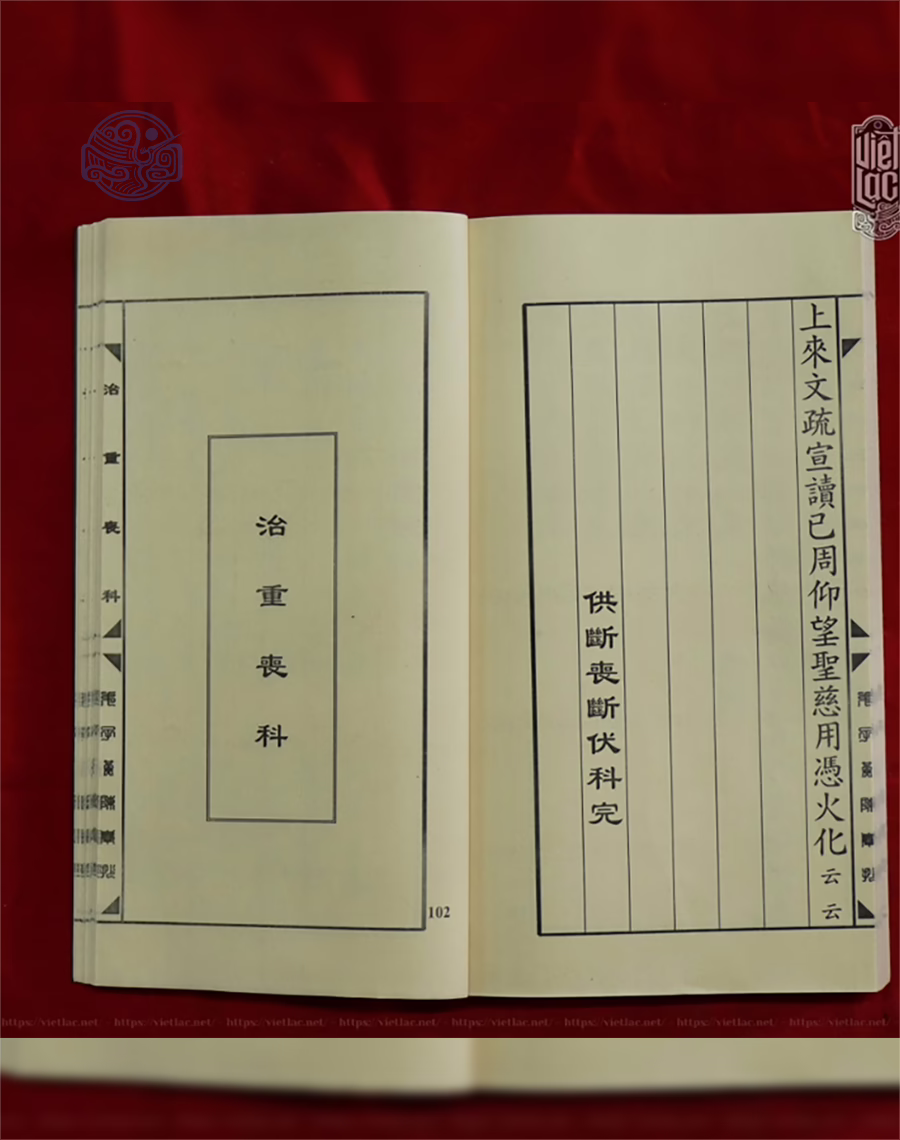 Việt
Lạc
上來文疏宣讀已周仰望聖慈用憑火化云云
供斷喪斷伏科完
治重喪科
治重喪科
102
https://vietlac.net/ - https://vietlac.net/ - https://vietlac.net/ - https://vietlac.net/ - https://vietlac.net/ - https://vietlac.net/ - https://vietlac.net/ - https://vietlac.net/